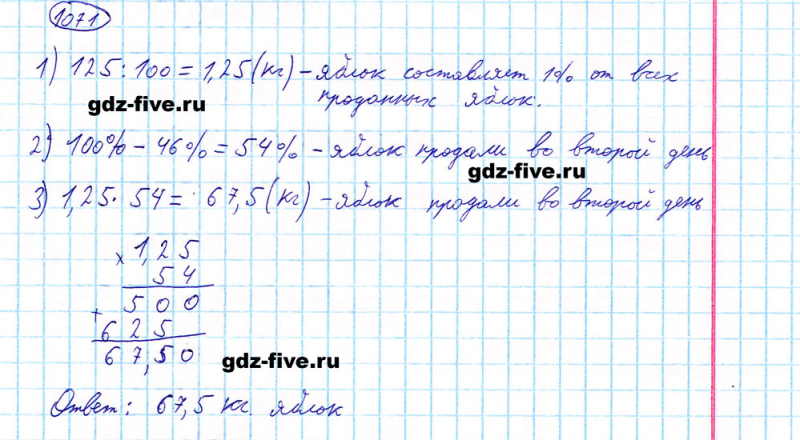 1071
1) 125 : 100 = 1,25 (кг) – яблок составляет 1% от всех
проданных яблок.
gdz-five.ru
2) 100% – 46% = 54% – яблок продали во второй день
gdz-five.ru
3) 1,25 · 54 = 67,5 (кг) – яблок продали во второй день
× 1,25
54
500
+
625
67,50
gdz-five.ru
Ответ: 67,5 кг яблок